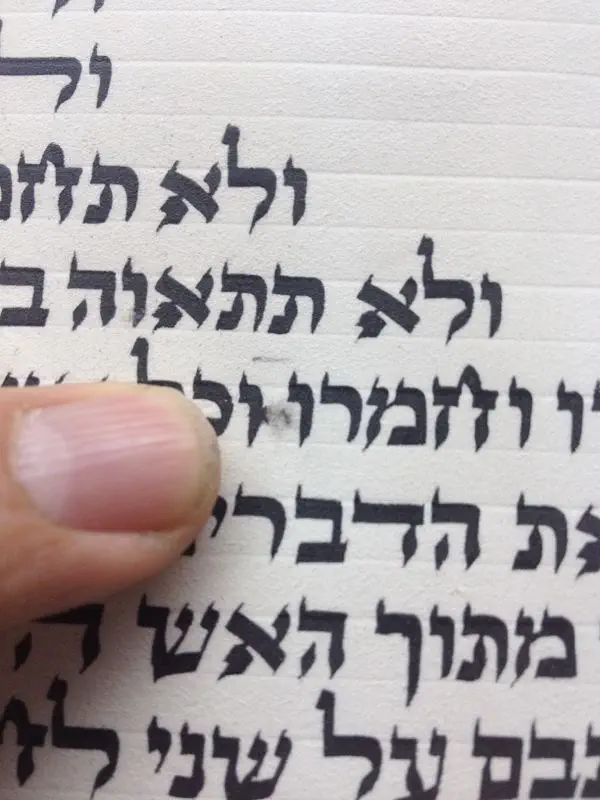 ול
ולא תחמ
ולא תתאוה ב
רו וחמרו וכל
את הדברי
מתוך האש ה
תבם על שני לח